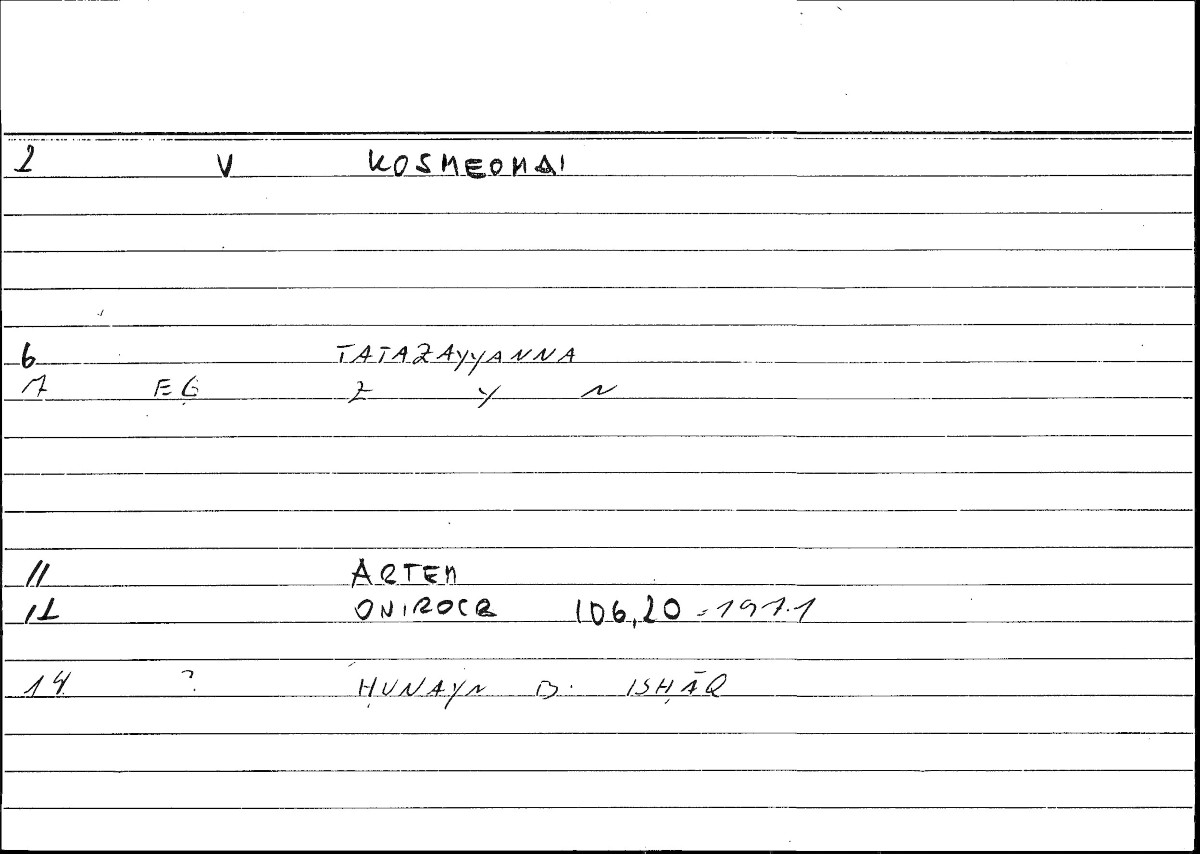 2 V KOSMEOMAI
6 TATAZAYYANNA
7 EĠ Z Y N
11 ARTEM
12 ONIROCR 106,20 = 197.1
14 ? ḤUNAYN B. ISḤĀQ